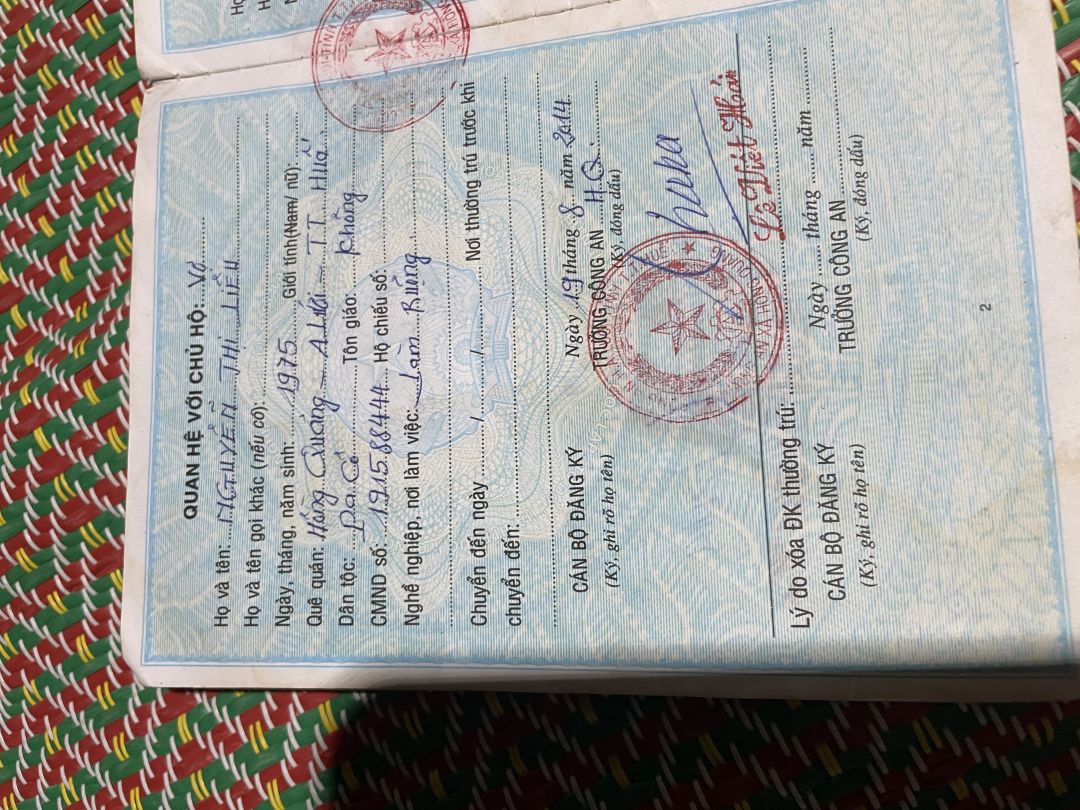 QUAN HỆ VỚI CHỦ HỘ: Vợ
Họ và tên: NGUYỄN THỊ LIẾU
Họ và tên gọi khác (nếu có):
Ngày, tháng, năm sinh: 1975 Giới tính(Nam/ nữ):
Quê quán: Hồng Quảng - A Lưới - TT Huế
Dân tộc: Pa Cô Tôn giáo: Không
CMND số: 191588444 Hộ chiếu số:
Nghề nghiệp, nơi làm việc: Làm Ruộng
Chuyển đến ngày / / Nơi thường trú trước khi
chuyển đến:
Ngày 19 tháng 8 năm 2014
CÁN BỘ ĐĂNG KÝ TRƯỞNG CÔNG AN H.Q
(Ký, ghi rõ họ tên) (Ký, đóng dấu)
Lê Viết Hoán
Lý do xóa ĐK thường trú:
Ngày tháng năm
CÁN BỘ ĐĂNG KÝ TRƯỞNG CÔNG AN
(Ký, ghi rõ họ tên) (Ký, đóng dấu)
2